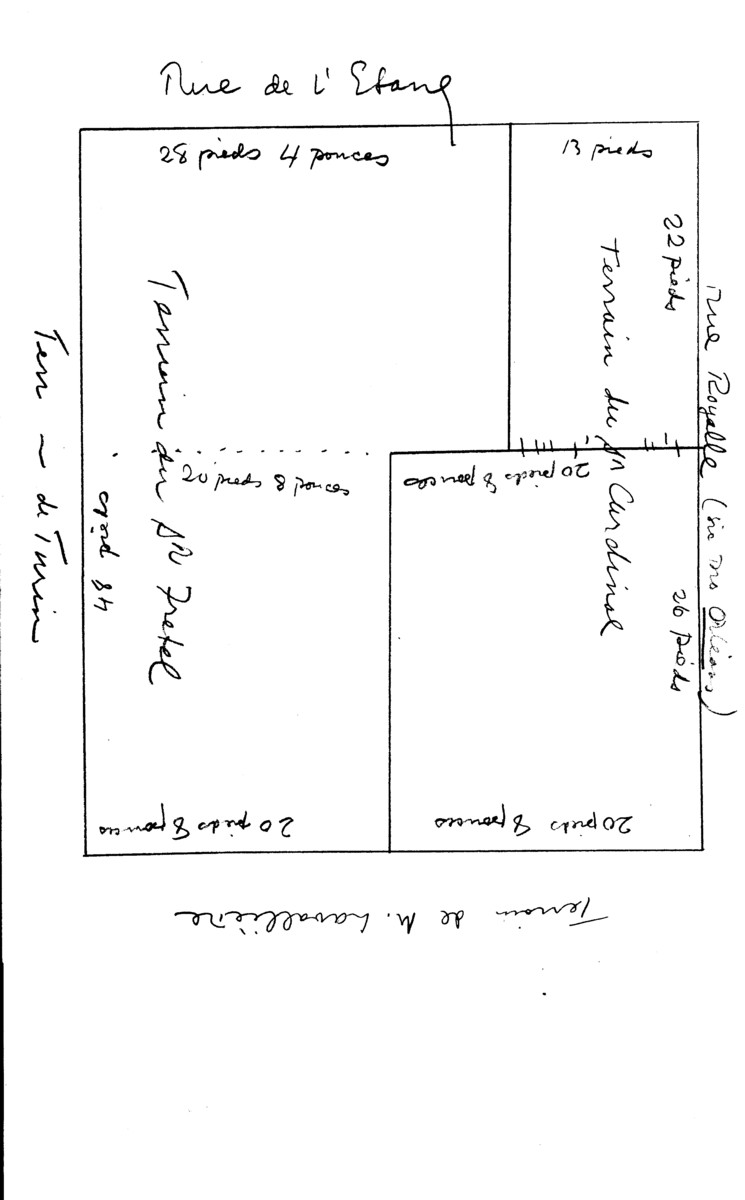 Rue de L'Etang
28 pieds 4 pouces
13 pieds
22 pieds
Rue Royalle (
Orléans)
Terrain du Sr Cardinal
Terrain du Sr Fretel
Terr de Turin
48 pieds
20 pieds 8 pouces
20 pieds 8 pouces
26 Pieds
20 pieds 8 pouces
20 pieds 8 pouces
Terrain de M. Lavallière